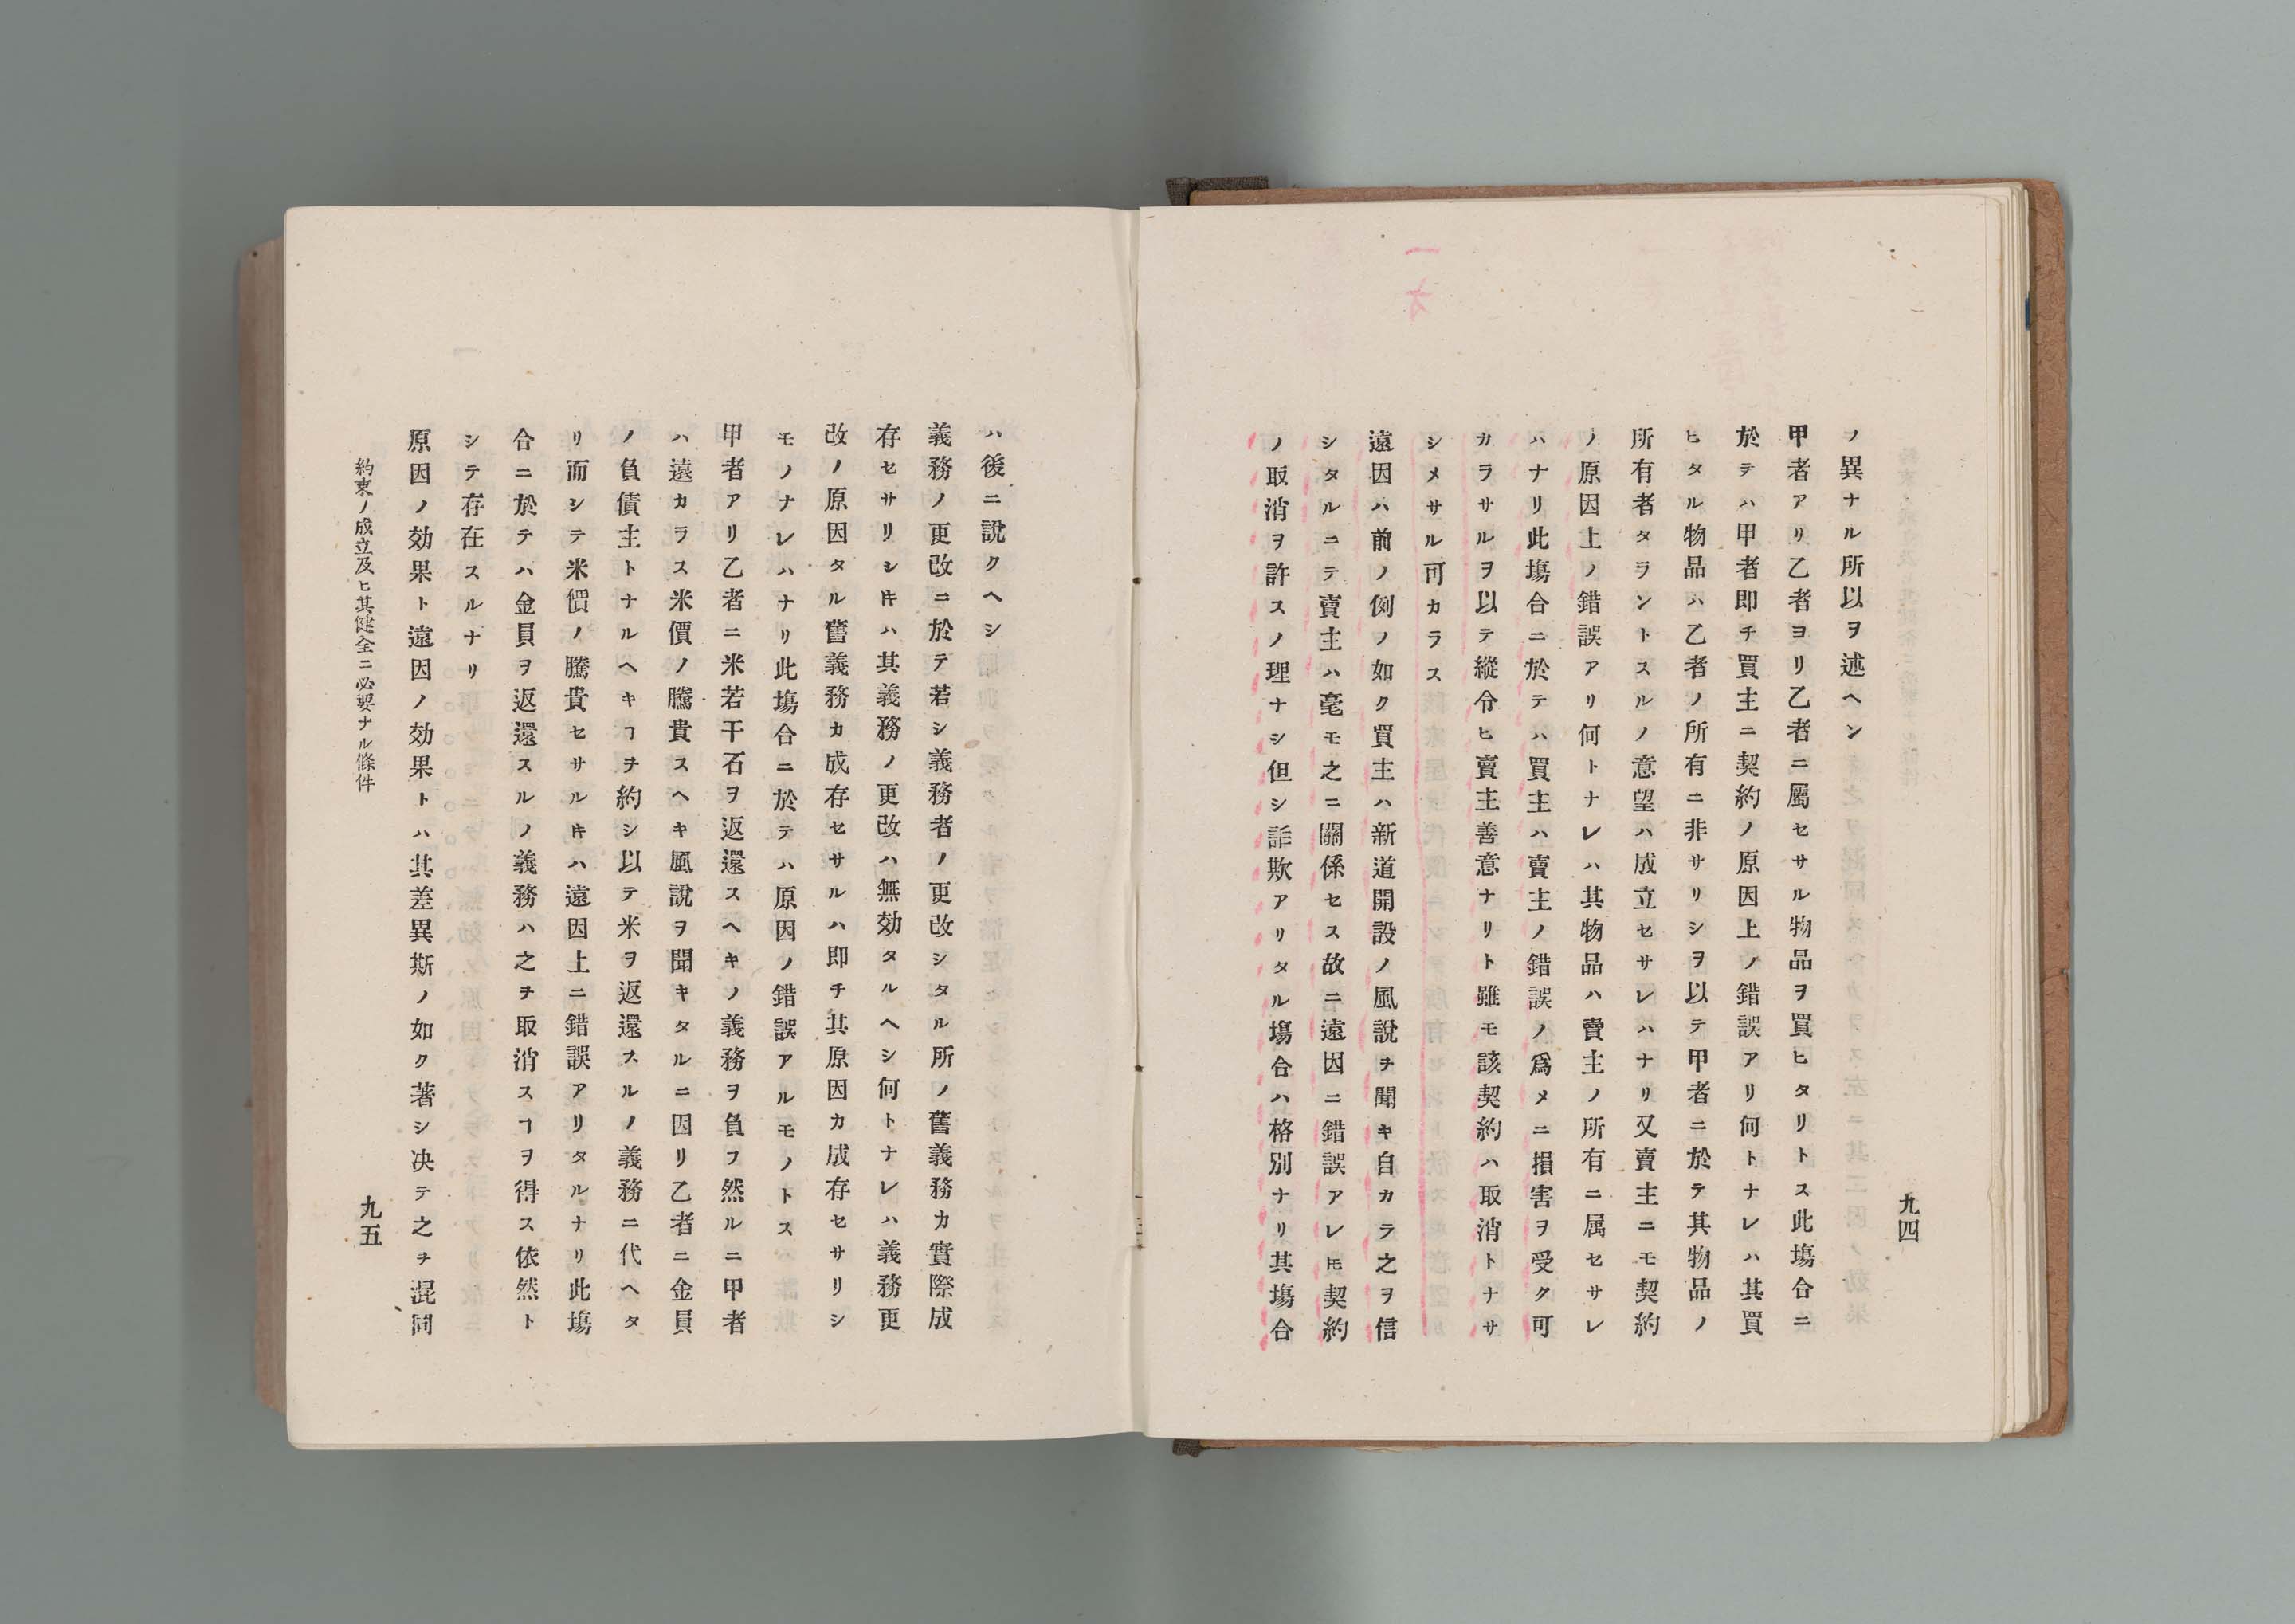 ノ異ナル所以ヲ述ヘン
甲者アリ乙者ヨリ乙者ニ屬セサル物品ヲ買ヒタリトス此塲合ニ
於テハ甲者即チ買主ニ契約ノ原因上ノ錯誤アリ何トナレハ其買
ヒタル物品ハ乙者ノ所有ニ非サリシヲ以テ甲者ニ於テ其物品ノ
所有者タラントスルノ意望ハ成立セサレハナリ又賣主ニモ契約
ノ原因上ノ錯誤アリ何トナレハ其物品ハ賣主ノ所有ニ属セサレ
ハナリ此塲合ニ於テハ買主ハ賣主ノ錯誤ノ爲メニ損害ヲ受ク可
カラサルヲ以テ縱令ヒ賣主善意ナリト雖モ該契約ハ取消トナサ
シメサル可カラス
遠因ハ前ノ例ノ如ク買主ハ新道開設ノ風說ヲ聞キ自カラ之ヲ信
シタルニテ賣主ハ毫モ之ニ關係セス故ニ遠因ニ錯誤アレ𪜈契約
ノ取消ヲ許スノ理ナシ但シ詐欺アリタル塲合ハ格別ナリ其塲合
九四
ハ後ニ說クヘシ
義務ノ更改ニ於テ若シ義務者ノ更改シタル所ノ舊義務カ實際成
存セサリシ𪜈ハ其義務ノ更改ハ無効タルヘシ何トナレハ義務更
改ノ原因タル舊義務カ成存セサルハ即チ其原因カ成存セサリシ
モノナレハナリ此塲合ニ於テハ原因ノ錯誤アルモノトス
甲者アリ乙者ニ米若干石ヲ返還スヘキノ義務ヲ負フ然ルニ甲者
ハ遠カラス米價ノ騰貴スヘキ風說ヲ聞キタルニ因リ乙者ニ金員
ノ負債主トナルヘキヿヲ約シ以テ米ヲ返還スルノ義務ニ代ヘタ
リ而シテ米價ノ騰貴セサル𪜈ハ遠因上ニ錯誤アリタルナリ此塲
合ニ於テハ金員ヲ返還スルノ義務ハ之ヲ取消スヿヲ得ス依然ト
シテ存在スルナリ
原因ノ効果ト遠因ノ効果トハ其差異斯ノ如ク著シ决テ之ヲ混同
約束ノ成立及ヒ其健全ニ必要ナル條件
九五